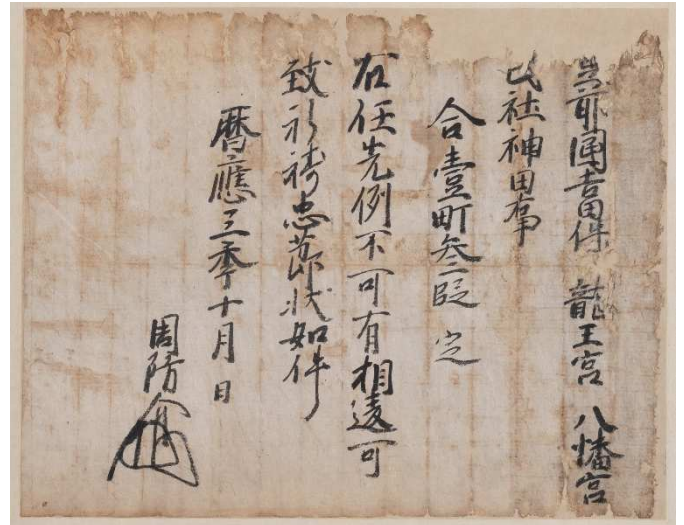 前國吉田保 龍王宮 八幡宮
社神田事
合壹町参段 定
右任先例不可有相違可
致祈祷忠節状如件
暦應三季十月日
周防